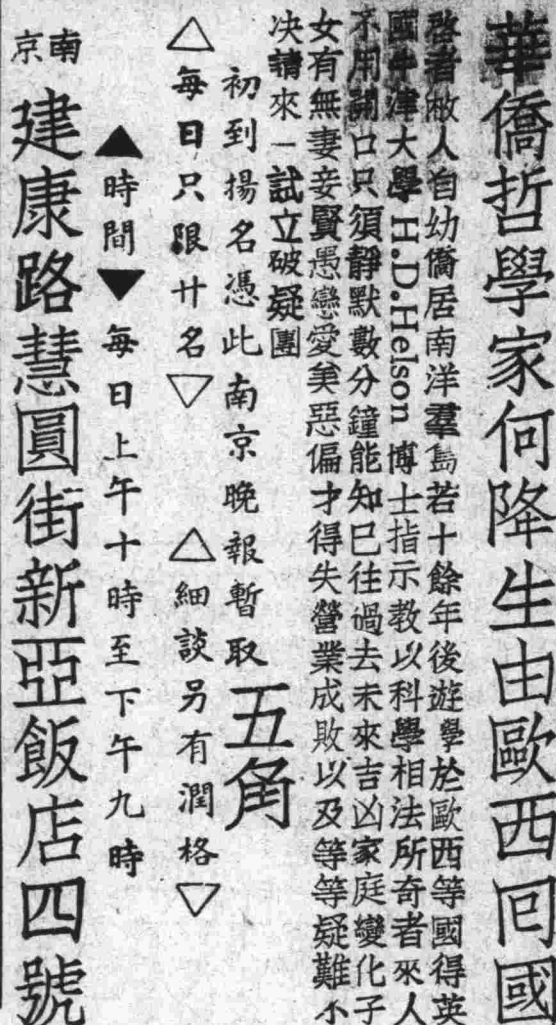 華僑哲學家何降生由歐西囘國
啓者敝人自幼僑居南洋羣島若十餘年後遊學於歐西等國得英
國牛津大學H.D.Helson博士指示教以科學相法所奇者來人
不用開口只須靜默數分鐘能知已往過去未來吉凶家庭變化子
女有無妻妾賢愚戀愛美惡偏才得失營業成敗以及等等疑難不
决請來一試立破疑團
初到揚名憑此南京晚報暫取五角
△每日只限廿名▽ △細談另有潤格▽
▲時間▼每日上午十時至下午九時
南京建康路慧圓街新亞飯店四號